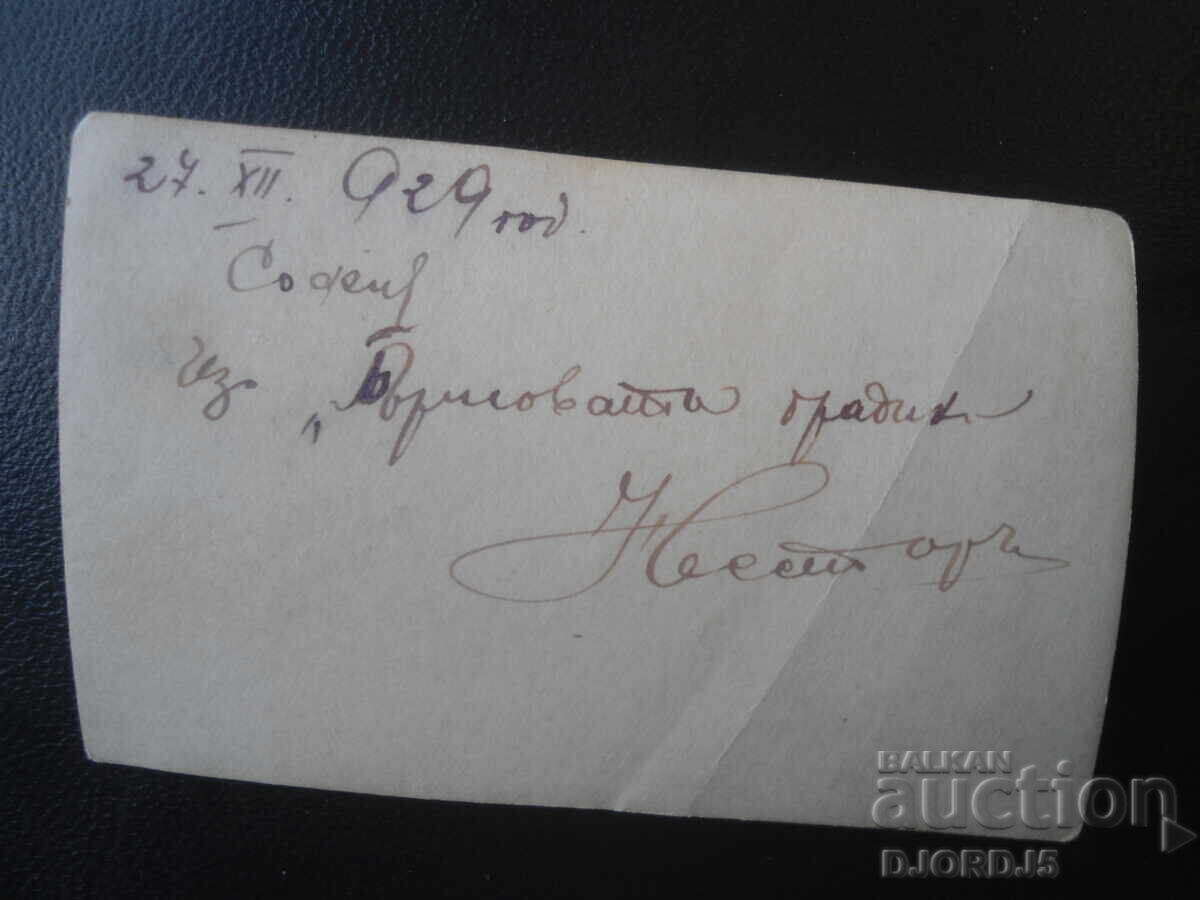 27. XII. 929 год.
София
из „Борисовата градина
Несторъ
BALKAN
auction
DJORDJ5